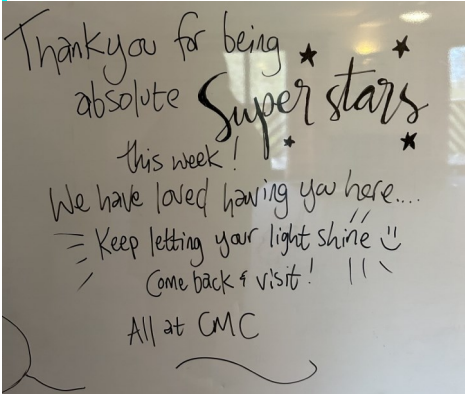 Thankyou for being
absolute Superstars
this week!
We have loved having you here....
Keep letting your light shine
Come back & visit!
All at CMC